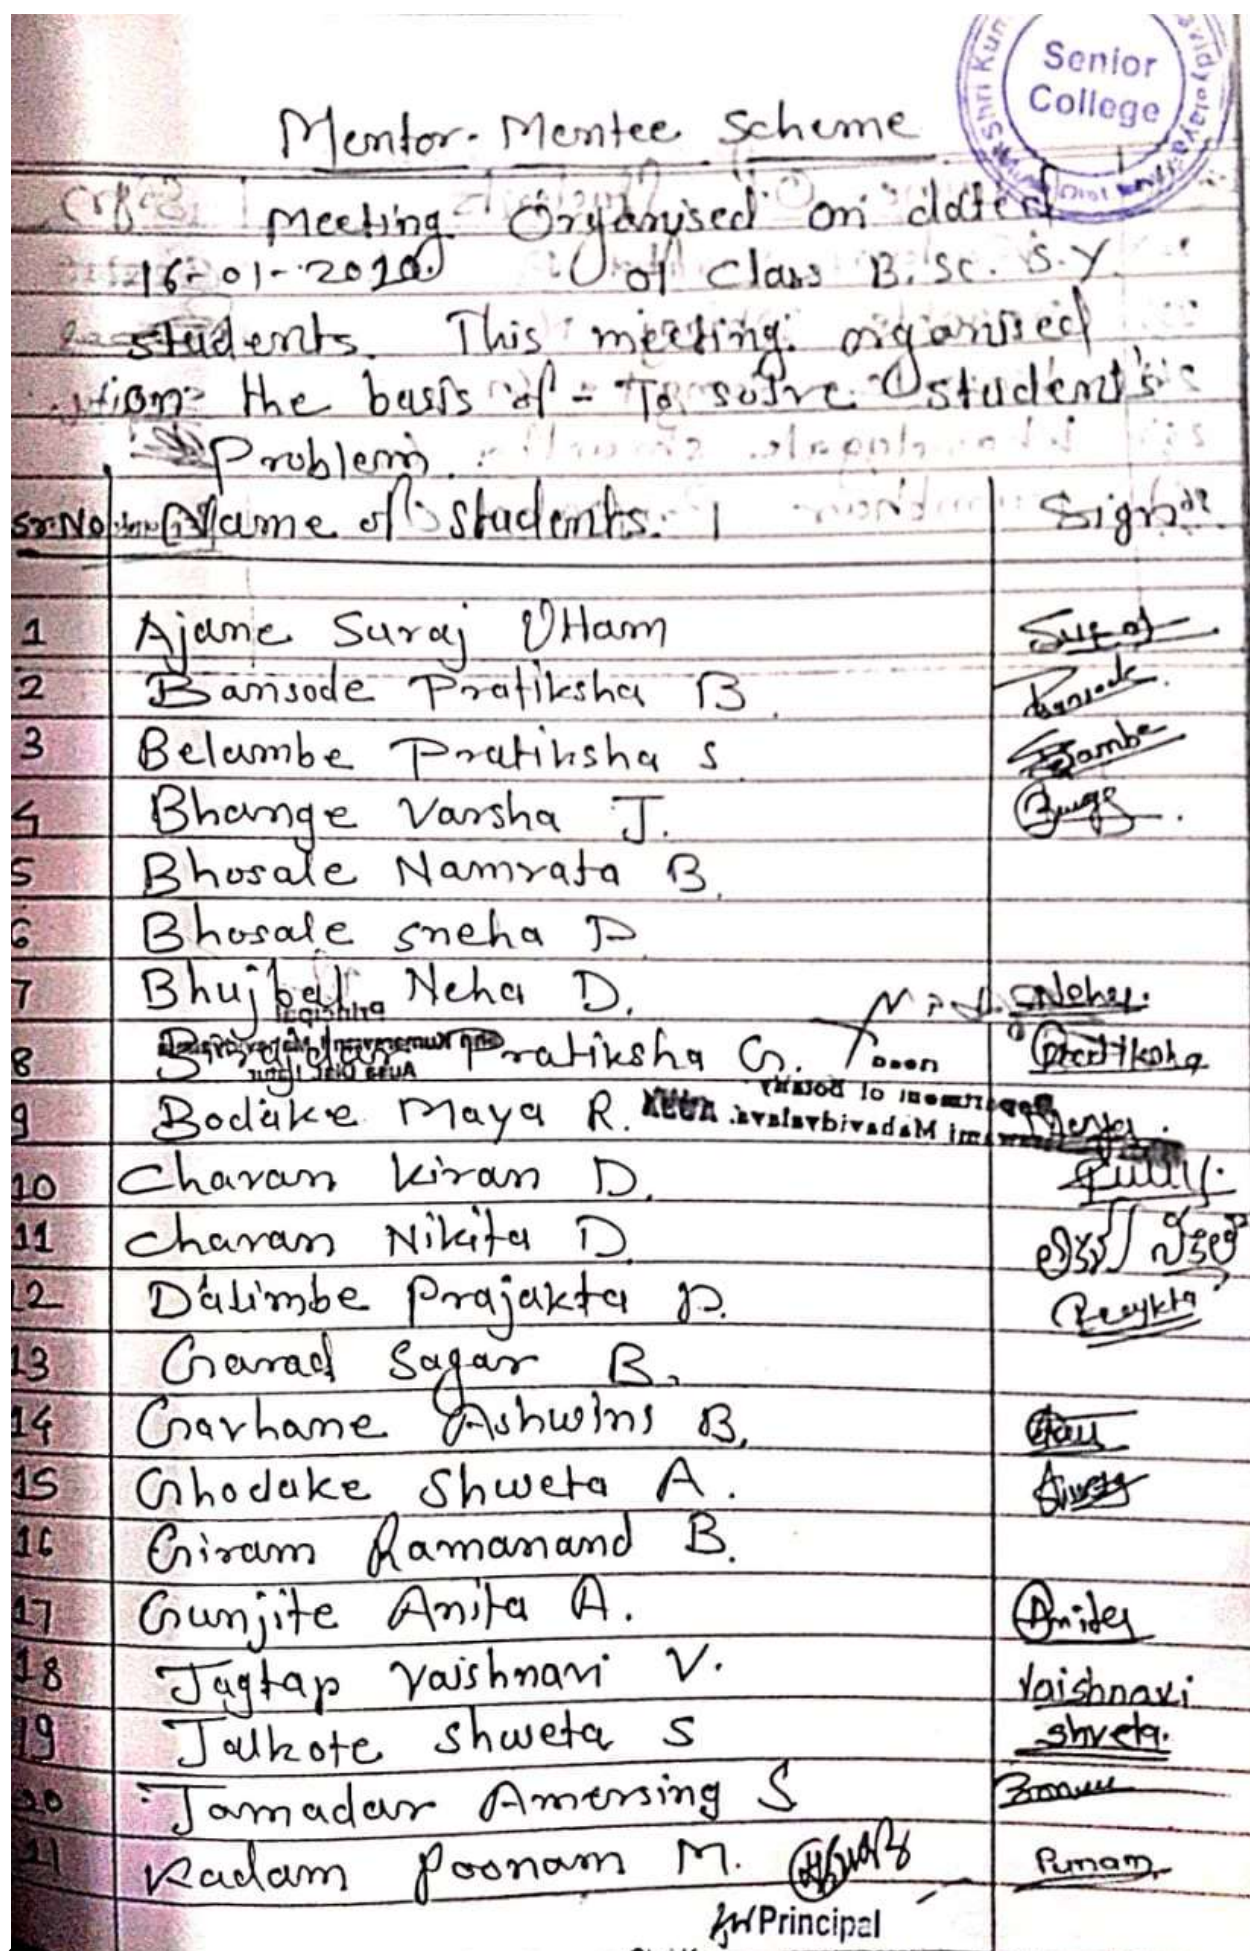 Senior
College
Mentor-Mentee Scheme
Meeting Organised on dated
16-01-2020. of Class B.Sc. S.Y.
students. This meeting organised
on the basis of - To solve student's
Problem.
Sr.No Name of Students. Sign
1 Ajane Suraj Uttam Suraj
2 Bansode Pratiksha B. Bansode
3 Belambe Pratiksha S
4 Bhange Varsha J.
5 Bhosale Namrata B.
6 Bhosale Sneha P.
7 Bhujbal Neha D. Neha
8 Birajdar Pratiksha G. Pratiksha
9 Bodake Maya R.
10 Chavan Kiran D.
11 Chavan Nikita D.
12 Dalimbe Prajakta P.
13 Garad Sagar B.
14 Garhane Ashwini B.
15 Ghodake Shweta A.
16 Giram Ramanand B.
17 Gunjite Anita A. Anita
18 Jagtap Vaishnavi V. Vaishnavi
19 Jalkote Shweta S Shveta.
20 Jamadar Amersing S
21 Kadam Poonam M. Punam
Principal